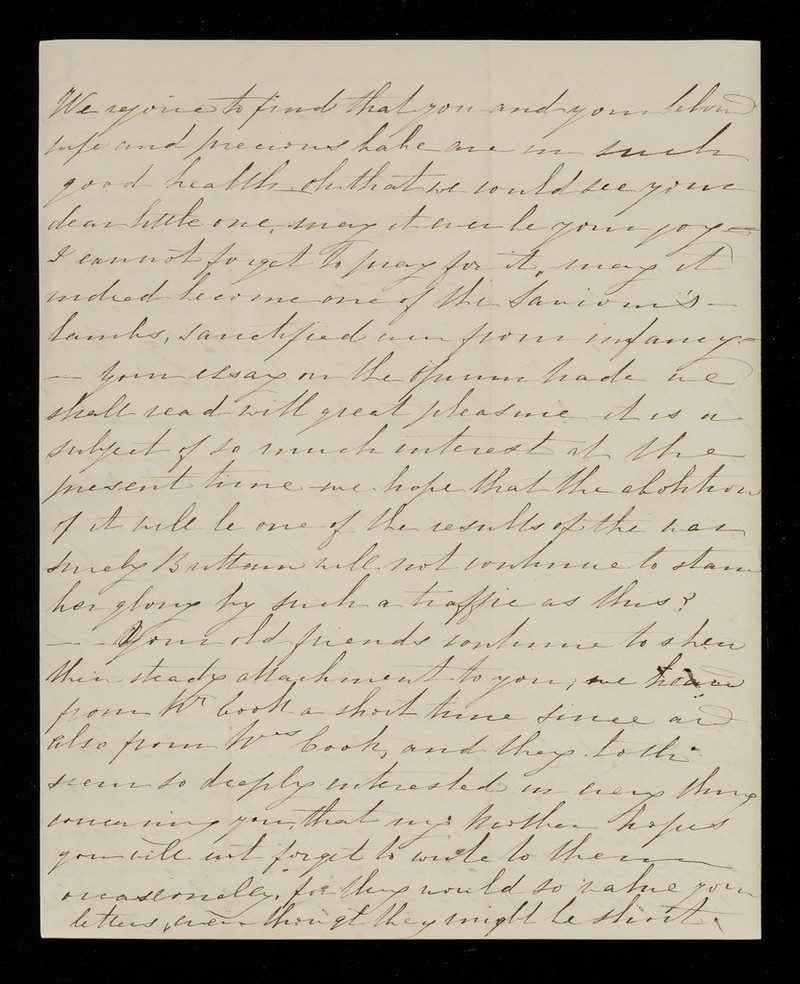 We rejoice to find that you and your belovd
wife and precious babe are in such
good health. oh that we could see your
dear little one, may it ever be your joy—
I cannot forget to pray for it, may it
indeed become one of the Saviour's—
lambs, sanctified even from infancy.—
— Your essay on the Opium trade we
shall read with great pleasure it is a
subject of so much interest at the
present time—we hope that the abolition
of it will be one of the results of the war
surely Brittain will not continue to stain
her glory by such a traffic as this?
—— Your old friends continue to shew
their steady attachment to you, we heard
from Mr Cook a short time since and
also from Mrs Cook, and they both
seem so deeply interested in every thing
concerning you, that my Mother hopes
you will not forget to write to them
occasionaley, for they would so value your
letters, even though they might be short.